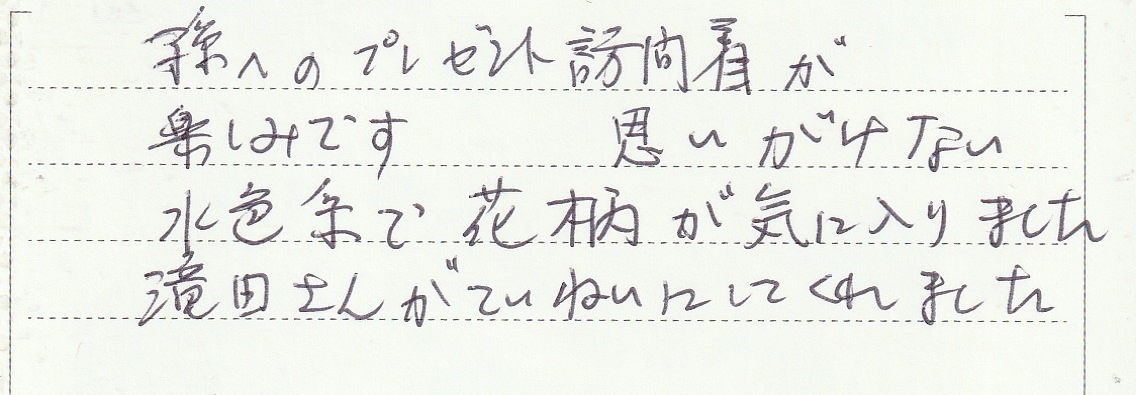 孫へのプレゼント訪問着が
楽しみです　思いがけない
水色系で花柄が気に入りました
滝田さんがていねいにしてくれました